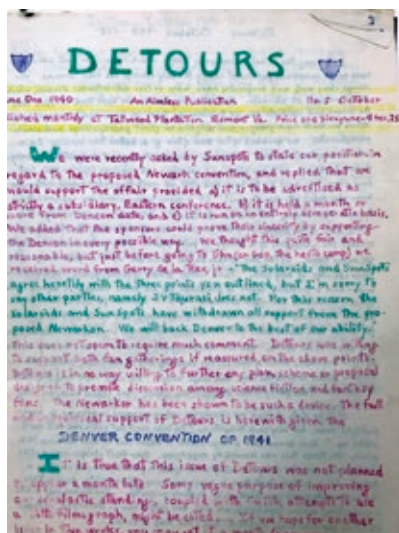 3
DETOURS
me One 1940 An Aimless Publication No. 5 October
lished monthly at Tallwood Plantation
We were recently asked by Sunspots to state our position in
regard to the proposed Newark convention, and replied that we
would support the affair provided a) it is to be advertised as
strictly a subsidiary, Eastern conference. b) it is held a month or
more from Dencon date, and c) it is run on an entirely democratic basis.
We added that the sponsors could prove their sincerity by supporting
the Denvion in every possible way. We thought this quite fair and
reasonable, but just before going to
received word from Gerry de la Ree, jr - "The Solaroids and Sunspots
agree heartily with the three points you outlined, but I'm sorry to
say other parties, namely does not. For this reason the
Solaroids and Sunspots have withdrawn all support from the pro-
posed Newarkon. We will back Denver to the best of our ability."
This does not seem to require much comment. Detours was willing
to support both fan gatherings if measured on the above points
but is in no way willing to further any plan, scheme or proposal
designed to promote dissension among science fiction and fantasy
fans. The Newarkon has been shown to be such a device. The full
and support of Detours is herewith given the
DENVER CONVENTION OF 1941
It is true that this issue of Detours was not planned
to appear a month late. Some vague purpose of improving
standing, coupled with attempts to use
a filmograph, might be cited. If we hope for another